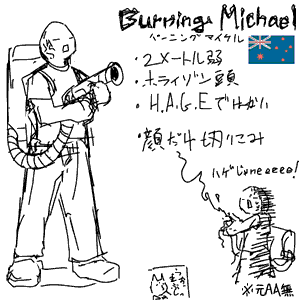 Burning Michael
バーニングマイケル
・2メートル弱
・ホライゾン頭
・H.A.G.Eではない
・顔だけ切りこみ
ハゲじゃneeeee!
※元AA無